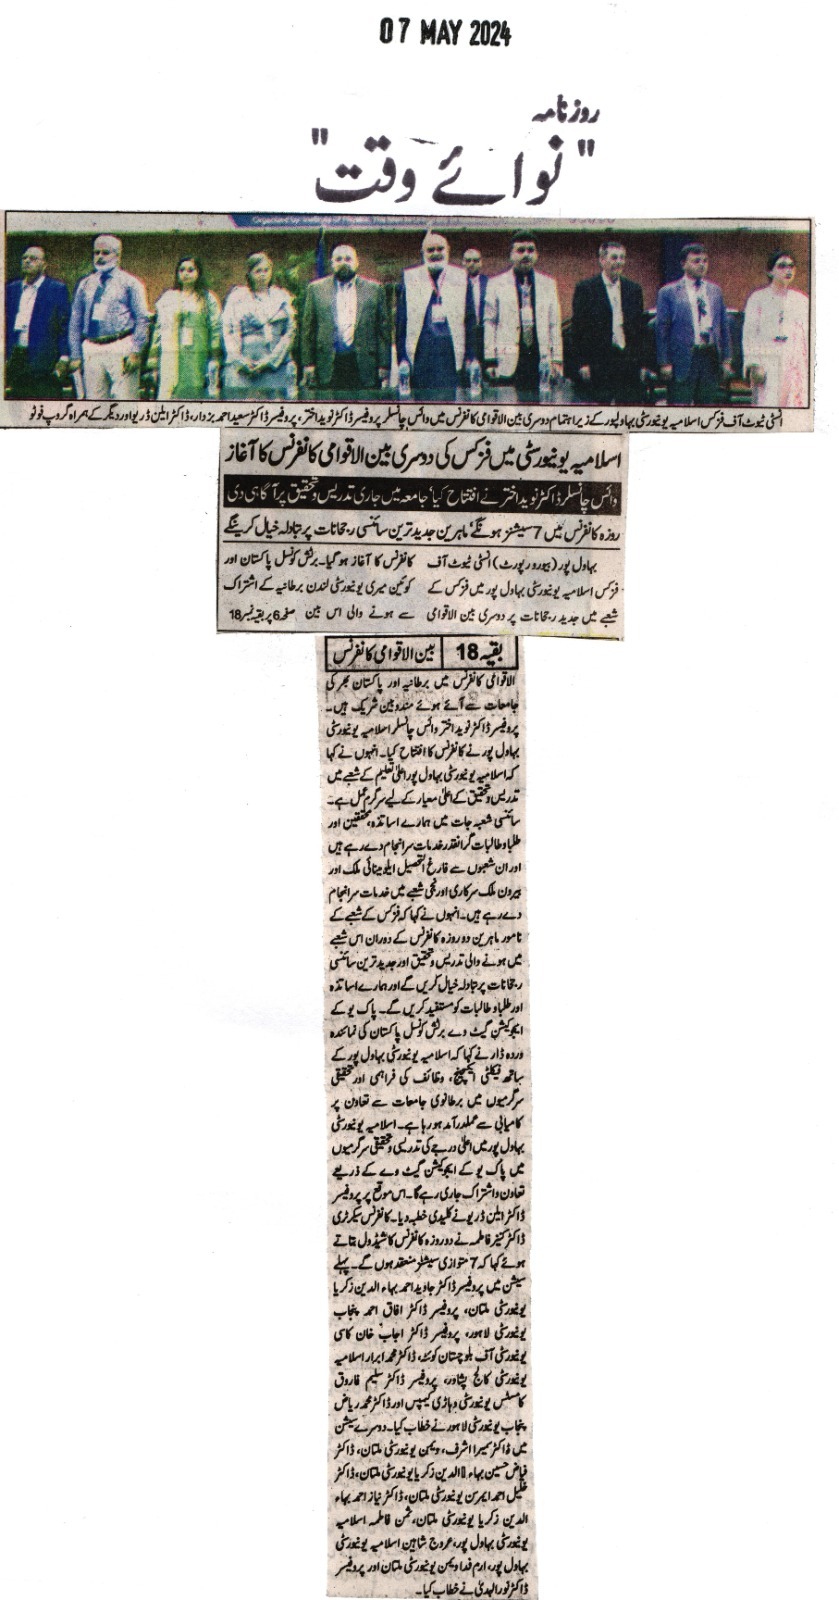 07 MAY 2024
روزنامہ
"نوائے وقت"
انسٹی ٹیوٹ آف فزکس اسلامیہ یونیورسٹی بہاولپور کے زیر اہتمام دوسری بین الاقوامی کانفرنس میں وائس چانسلر پروفیسر ڈاکٹر نوید اختر، پروفیسر ڈاکٹر سعید احمد بزدار، ڈاکٹر ایلن ڈریو اور دیگر کے ہمراہ گروپ فوٹو
اسلامیہ یونیورسٹی میں فزکس کی دوسری بین الاقوامی کانفرنس کا آغاز
وائس چانسلر ڈاکٹر نوید اختر نے افتتاح کیا، جامعہ میں جاری تدریس و تحقیق پر آگاہی دی
روزہ کانفرنس میں 7 سیشنز ہونگے، ماہرین جدید ترین سائنسی رجحانات پر تبادلہ خیال کرینگے
بہاول پور (بیورو رپورٹ) انسٹی ٹیوٹ آف
فزکس اسلامیہ یونیورسٹی بہاول پور میں فزکس کے
شعبے میں جدید رجحانات پر دوسری بین الاقوامی
کانفرنس کا آغاز ہو گیا۔ برٹش کونسل پاکستان اور
کوئین میری یونیورسٹی لندن برطانیہ کے اشتراک
سے ہونے والی اس بین صفحہ 6 پر بقیہ نمبر 18
بقیہ 18 بین الاقوامی کانفرنس
الاقوامی کانفرنس میں برطانیہ اور پاکستان بھر کی
جامعات سے آئے ہوئے مندوبین شریک ہیں۔
پروفیسر ڈاکٹر نوید اختر وائس چانسلر اسلامیہ یونیورسٹی
بہاول پور نے کانفرنس کا افتتاح کیا۔ انہوں نے کہا
کہ اسلامیہ یونیورسٹی بہاول پور اعلیٰ تعلیم کے شعبے میں
تدریس و تحقیق کے اعلیٰ معیار کے لیے سرگرم عمل ہے۔
سائنسی شعبہ جات میں ہمارے اساتذہ، محققین اور
طلباو طالبات گرانقدر خدمات سرانجام دے رہے ہیں
اور ان شعبوں سے فارغ التحصیل ایلومینائی ملک اور
بیرون ملک سرکاری اور نجی شعبے میں خدمات سرانجام
دے رہے ہیں۔ انہوں نے کہا کہ فزکس کے شعبے کے
نامور ماہرین دو روزہ کانفرنس کے دوران اس شعبے
میں ہونے والی تدریس و تحقیق اور جدید ترین سائنسی
رجحانات پر تبادلہ خیال کریں گے اور ہمارے اساتذہ
اور طلبا و طالبات کو مستفید کریں گے۔ پاک یو کے
ایجوکیشن گیٹ وے برٹش کونسل پاکستان کی نمائندہ
وردہ ڈار نے کہا کہ اسلامیہ یونیورسٹی بہاول پور کے
ساتھ فیکلٹی ایکسچینج، وظائف کی فراہمی اور تحقیقی
سرگرمیوں میں برطانوی جامعات سے تعاون پر
کامیابی سے عملدرآمد ہو رہا ہے۔ اسلامیہ یونیورسٹی
بہاول پور میں اعلیٰ درجے کی تدریسی و تحقیقی سرگرمیوں
میں پاک یو کے ایجوکیشن گیٹ وے کے ذریعے
تعاون و اشتراک جاری رہے گا۔ اس موقع پر پروفیسر
ڈاکٹر ایلن ڈریو نے کلیدی خطبہ دیا۔ کانفرنس سیکرٹری
ڈاکٹر کنیز فاطمہ نے دو روزہ کانفرنس کا شیڈول بتاتے
ہوئے کہا کہ 7 متوازی سیشنز منعقد ہوں گے۔ پہلے
سیشن میں پروفیسر ڈاکٹر جاوید احمد بہاء الدین زکریا
یونیورسٹی ملتان، پروفیسر ڈاکٹر افاق احمد پنجاب
یونیورسٹی لاہور، پروفیسر ڈاکٹر اجاب خان کاسی
یونیورسٹی آف بلوچستان کوئٹہ، ڈاکٹر محمد ابرار اسلامیہ
یونیورسٹی کالج پشاور، پروفیسر ڈاکٹر سلیم فاروق
کامسٹس یونیورسٹی وہاڑی کیمپس اور ڈاکٹر محمد ریاض
پنجاب یونیورسٹی لاہور نے خطاب کیا۔ دوسرے سیشن
میں ڈاکٹر سمیرا اشرف، ویمن یونیورسٹی ملتان، ڈاکٹر
فیاض حسین بہاء الدین زکریا یونیورسٹی ملتان، ڈاکٹر
خلیل احمد ایمرسن یونیورسٹی ملتان، ڈاکٹر نیاز احمد بہاء
الدین زکریا یونیورسٹی ملتان، ثمن فاطمہ اسلامیہ
یونیورسٹی بہاول پور، عروج شاہین اسلامیہ یونیورسٹی
بہاول پور، ارم فدا ویمن یونیورسٹی ملتان اور پروفیسر
ڈاکٹر نور الہدیٰ نے خطاب کیا۔